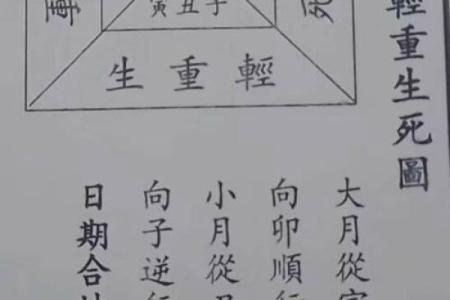 輕重生死圖
寅丑子
重
死
生重輕
大月從
向卯順行
小月從
向子逆行
日期合